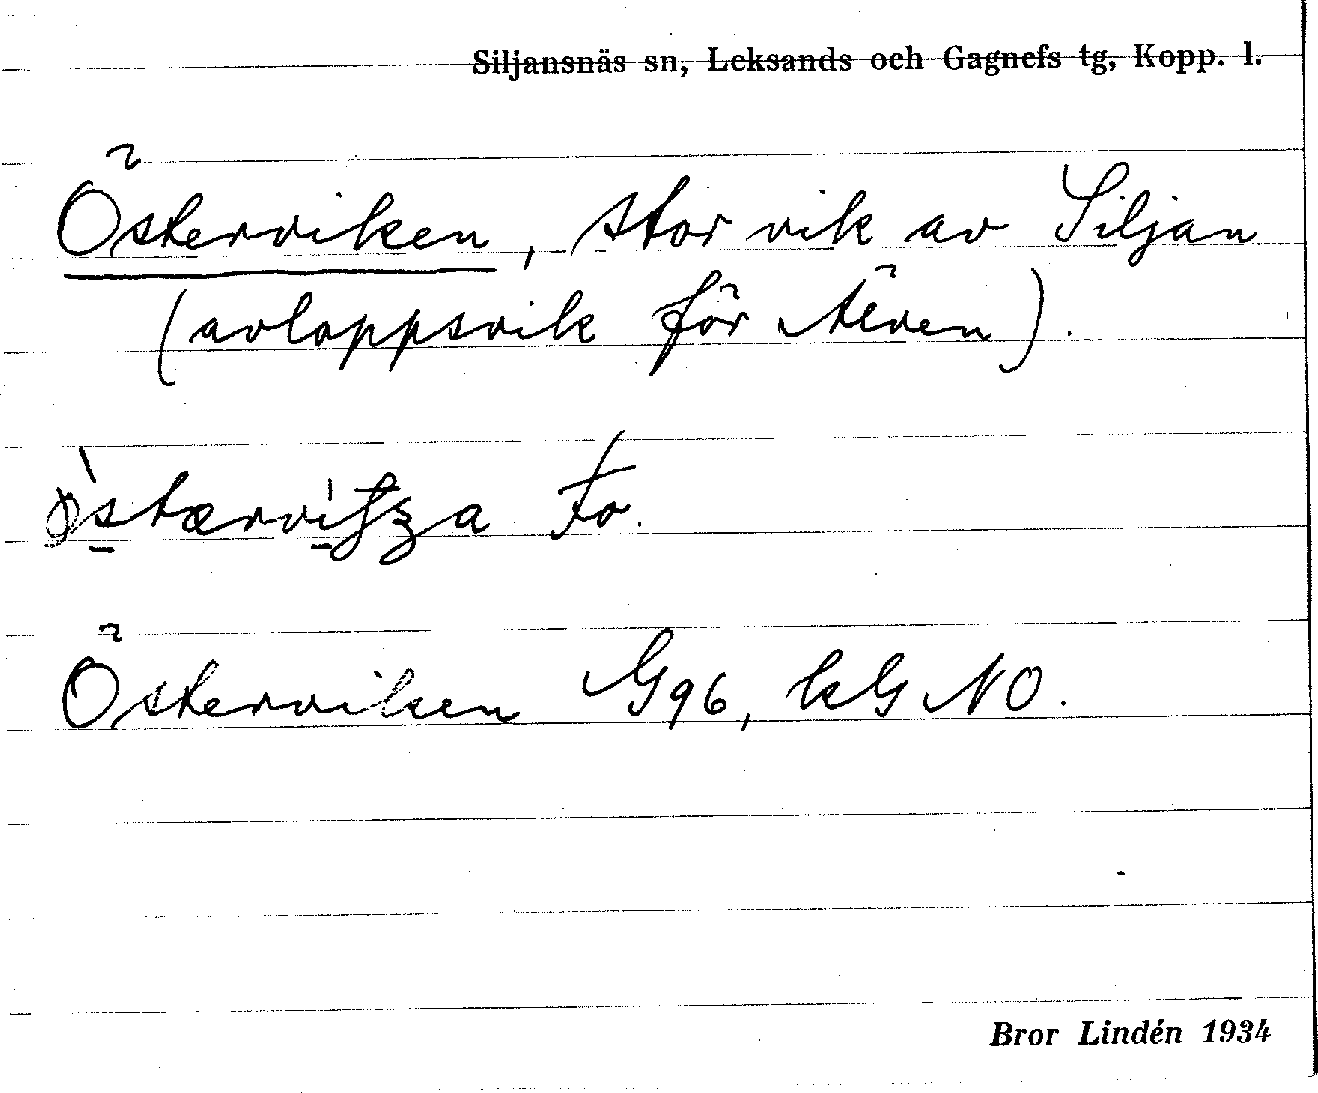 Siljansnäs sn, Leksands och Gagnefs tg, Kopp. l.
Österviken, stor vik av Siljan
(avloppsvik för Älven).
Fo.
Österviken G96, kG NO.
Bror Lindén 1934